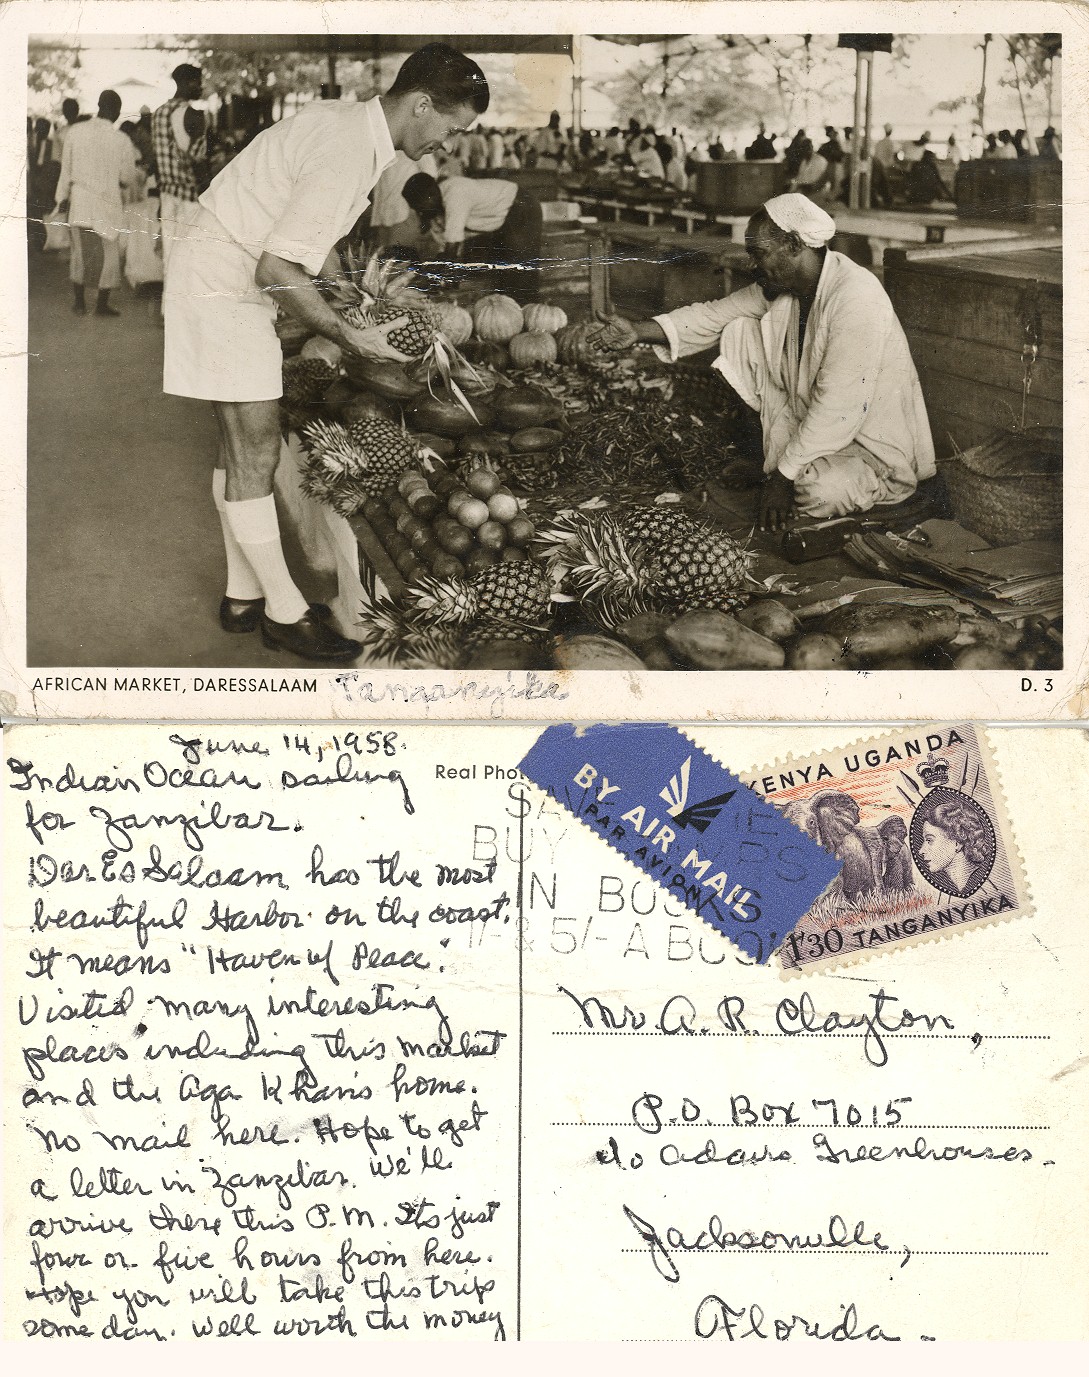 AFRICAN MARKET, DARESSALAAM Tanganyika D. 3
June 14, 1958.
Indian Ocean sailing
for Zanzibar.
Dar Es Salaam has the most
beautiful Harbor on the coast.
It means "Haven of Peace".
Visited many interesting
places including this market
and the Aga Khan's home.
No mail here. Hope to get
a letter in Zanzibar. We'll
arrive there this P.M. Its just
four or five hours from here.
Hope you will take this trip
some day. Well worth the money
Real Phot
BY AIR MAIL
PAR AVION
KENYA UGANDA
1/30 TANGANYIKA
BUY
IN BOOKS
1/- & 5/- A BOO
Mr A. R. Clayton,
P.O. Box 7015
c/o Adairs Greenhouses.
Jacksonville,
Florida.